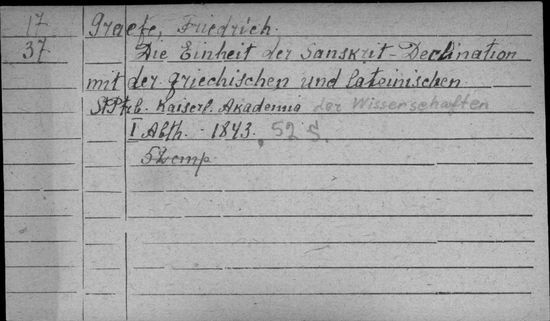 17 Graefe, Friedrich.
37. Die Einheit der Sanskrit-Declination
mit der griechischen und lateinischen.
St.Ptrb. Kaiserl. Akademia der Wissenschaften
I Abth. 1843. 52 S.
52 cmp.